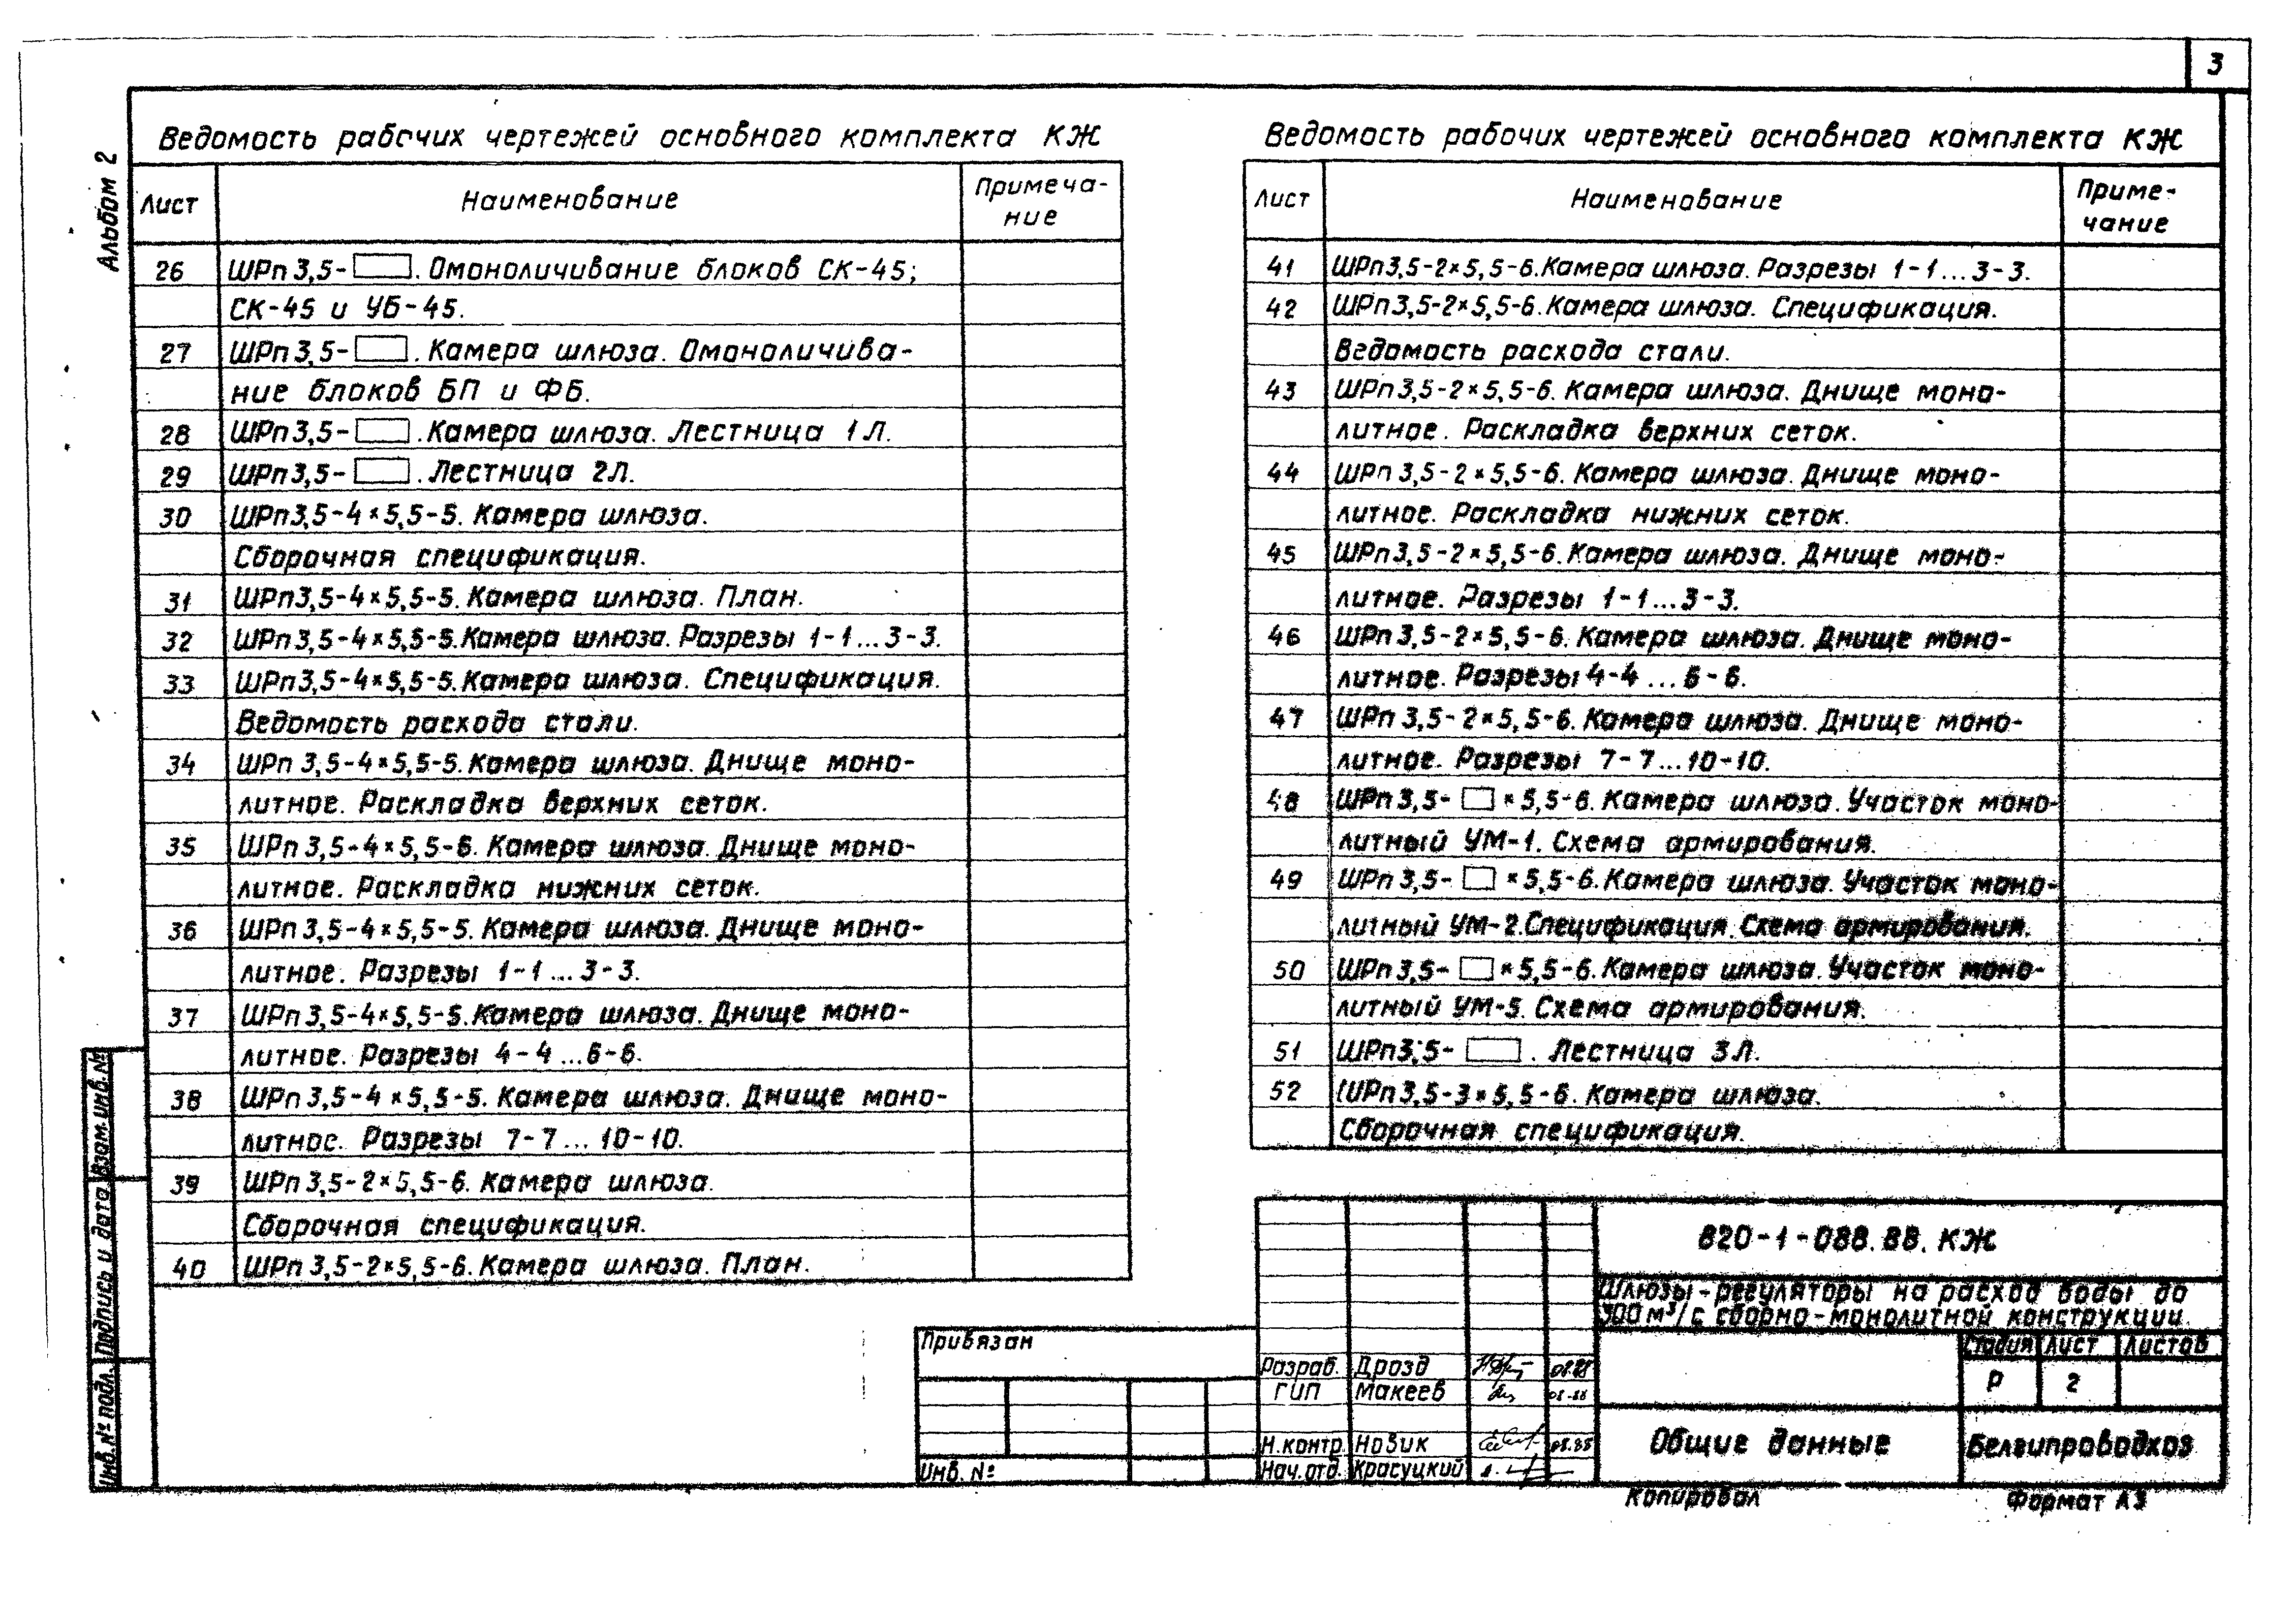 3
Альбом 2
Ведомость рабочих чертежей основного комплекта КЖ
Лист Наименование Примеча-
ние
26 ШРп 3,5- . Омоноличивание блоков СК-45;
СК-45 и УБ-45.
27 ШРп 3,5- . Камера шлюза. Омоноличива-
ние блоков БП и ФБ.
28 ШРп 3,5- . Камера шлюза. Лестница 1Л.
29 ШРп 3,5- . Лестница 2Л.
30 ШРп 3,5-4×5,5-5. Камера шлюза.
Сборочная спецификация.
31 ШРп 3,5-4×5,5-5. Камера шлюза. План.
32 ШРп 3,5-4×5,5-5. Камера шлюза. Разрезы 1-1...3-3.
33 ШРп 3,5-4×5,5-5. Камера шлюза. Спецификация.
Ведомость расхода стали.
34 ШРп 3,5-4×5,5-5. Камера шлюза. Днище моно-
литное. Раскладка верхних сеток.
35 ШРп 3,5-4×5,5-6. Камера шлюза. Днище моно-
литное. Раскладка нижних сеток.
36 ШРп 3,5-4×5,5-5. Камера шлюза. Днище моно-
литное. Разрезы 1-1...3-3.
37 ШРп 3,5-4×5,5-5. Камера шлюза. Днище моно-
литное. Разрезы 4-4...6-6.
38 ШРп 3,5-4×5,5-5. Камера шлюза. Днище моно-
литное. Разрезы 7-7...10-10.
39 ШРп 3,5-2×5,5-6. Камера шлюза.
Сборочная спецификация.
40 ШРп 3,5-2×5,5-6. Камера шлюза. План.
Ведомость рабочих чертежей основного комплекта КЖ
Лист Наименование Приме-
чание
41 ШРп 3,5-2×5,5-6. Камера шлюза. Разрезы 1-1...3-3.
42 ШРп 3,5-2×5,5-6. Камера шлюза. Спецификация.
Ведомость расхода стали.
43 ШРп 3,5-2×5,5-6. Камера шлюза. Днище моно-
литное. Раскладка верхних сеток.
44 ШРп 3,5-2×5,5-6. Камера шлюза. Днище моно-
литное. Раскладка нижних сеток.
45 ШРп 3,5-2×5,5-6. Камера шлюза. Днище моно-
литное. Разрезы 1-1...3-3.
46 ШРп 3,5-2×5,5-6. Камера шлюза. Днище моно-
литное. Разрезы 4-4...6-6.
47 ШРп 3,5-2×5,5-6. Камера шлюза. Днище моно-
литное. Разрезы 7-7...10-10.
48 ШРп 3,5- ×5,5-6. Камера шлюза. Участок моно-
литный УМ-1. Схема армирования.
49 ШРп 3,5- ×5,5-6. Камера шлюза. Участок моно-
литный УМ-2. Спецификация. Схема армирования.
50 ШРп 3,5- ×5,5-6. Камера шлюза. Участок моно-
литный УМ-5. Схема армирования.
51 ШРп 3,5- . Лестница 3Л.
52 ШРп 3,5-3×5,5-6. Камера шлюза.
Сборочная спецификация.
820-1-088.88. КЖ
Шлюзы-регуляторы на расход воды до
300 м³/с сборно-монолитной конструкции.
Стадия Лист Листов
Р 2
Общие данные
Белгипроводхоз
Разраб. Дрозд 08.88
ГИП Макеев 08-88
Н.контр. Новик 08.88
Нач.отд. Красуцкий
Привязан
Инв. №
Взам. инв. №
Подпись и дата
Инв. № подл.
Копировал
Формат А3